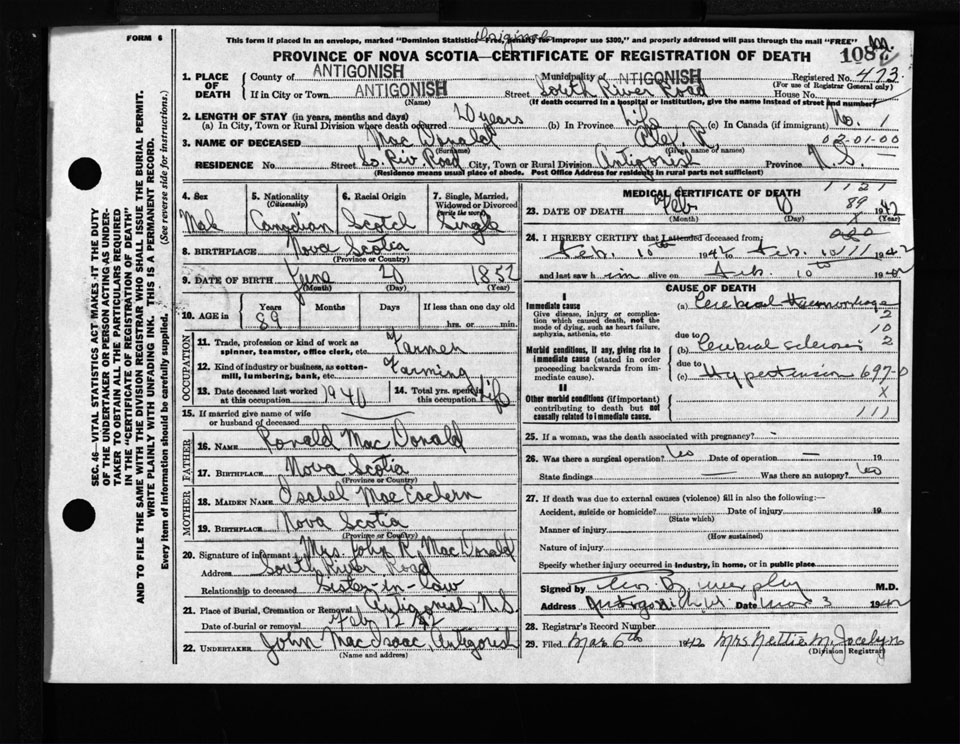 FORM 6
This form if placed in an envelope, marked "Dominion Statistics—Free, Penalty for improper use $300," and properly addressed will pass through the mail "FREE"
Original
PROVINCE OF NOVA SCOTIA—CERTIFICATE OF REGISTRATION OF DEATH
108
1. PLACE OF DEATH
County of ANTIGONISH Municipality of ANTIGONISH Registered No. 473
(For use of Registrar General only)
If in City or Town ANTIGONISH Street South River Road House No.
(Name) (If death occurred in a hospital or institution, give the name instead of street and number)
2. LENGTH OF STAY (in years, months and days)
(a) In City, Town or Rural Division where death occurred 20 years (b) In Province Life (c) In Canada (if immigrant) No. 1
3. NAME OF DECEASED Mac Donald Alex R. 02-01-00
(Surname) (Given name or names)
RESIDENCE No. Street So. Riv Road City, Town or Rural Division Antigonish Province N.S.
(Residence means usual place of abode. Post Office Address for residents in rural parts not sufficient)
4. Sex 5. Nationality (Citizenship) 6. Racial Origin 7. Single, Married, Widowed or Divorced (write the word)
Male Canadian Scotch Single
8. BIRTHPLACE Nova Scotia
(Province or Country)
9. DATE OF BIRTH June 20 1852
(Month) (Day) (Year)
10. AGE in Years Months Days If less than one day old
89 hrs. or min.
OCCUPATION
11. Trade, profession or kind of work as spinner, teamster, office clerk, etc. Farmer
12. Kind of industry or business, as cotton-mill, lumbering, bank, etc. Farming
13. Date deceased last worked at this occupation 1940 14. Total yrs. spent in this occupation Life
15. If married give name of wife or husband of deceased
FATHER
16. NAME Ronald Mac Donald
17. BIRTHPLACE Nova Scotia
(Province or Country)
MOTHER
18. MAIDEN NAME Isabel Mac Eachern
19. BIRTHPLACE Nova Scotia
(Province or Country)
20. Signature of informant Mrs. John R. MacDonald
Address South River Road
Relationship to deceased Sister-in-law
21. Place of Burial, Cremation or Removal Antigonish N.S.
Date of burial or removal Feb 12 42
22. UNDERTAKER John MacIsaac, Antigonish
(Name and address)
MEDICAL CERTIFICATE OF DEATH
1121
23. DATE OF DEATH Feb 1942
(Month) (Day) (Year)
89
24. I HEREBY CERTIFY that I attended deceased from:
Feb. 10th 1942 to Feb. 1942
and last saw him alive on Feb. 10th 1942
CAUSE OF DEATH
I
Immediate cause
Give disease, injury or complication which caused death, not the mode of dying, such as heart failure, asphyxia, asthenia, etc
(a) Cerebral Haemorrhage
12
10
2
due to
Morbid conditions, if any, giving rise to immediate cause (stated in order proceeding backwards from immediate cause).
(b) Cerebral sclerosis
due to
(c) Hypertension 697-0
X
II
Other morbid conditions (if important) contributing to death but not causally related to immediate cause.
111
25. If a woman, was the death associated with pregnancy?
26. Was there a surgical operation? Date of operation 19
State findings Was there an autopsy?
27. If death was due to external causes (violence) fill in also the following:—
Accident, suicide or homicide? Date of injury 19
(State which)
Manner of injury
(How sustained)
Nature of injury
Specify whether injury occurred in industry, in home, or in public place
Signed Murphy M.D.
Address Antigonish Date Mar 3 1942
28. Registrar's Record Number
29. Filed Mar 6th 1942 Mrs Nettie M. Jocelyn
(Division Registrar)
SEC. 46—VITAL STATISTICS ACT MAKES IT THE DUTY
OF THE UNDERTAKER OR PERSON ACTING AS UNDER-
TAKER TO OBTAIN ALL THE PARTICULARS REQUIRED
IN THE "CERTIFICATE OF REGISTRATION OF DEATH"
AND TO FILE THE SAME WITH THE DIVISION REGISTRAR WHO SHALL ISSUE THE BURIAL PERMIT.
WRITE PLAINLY WITH UNFADING INK. THIS IS A PERMANENT RECORD.
Every item of information should be carefully supplied. (See reverse side for instructions.)